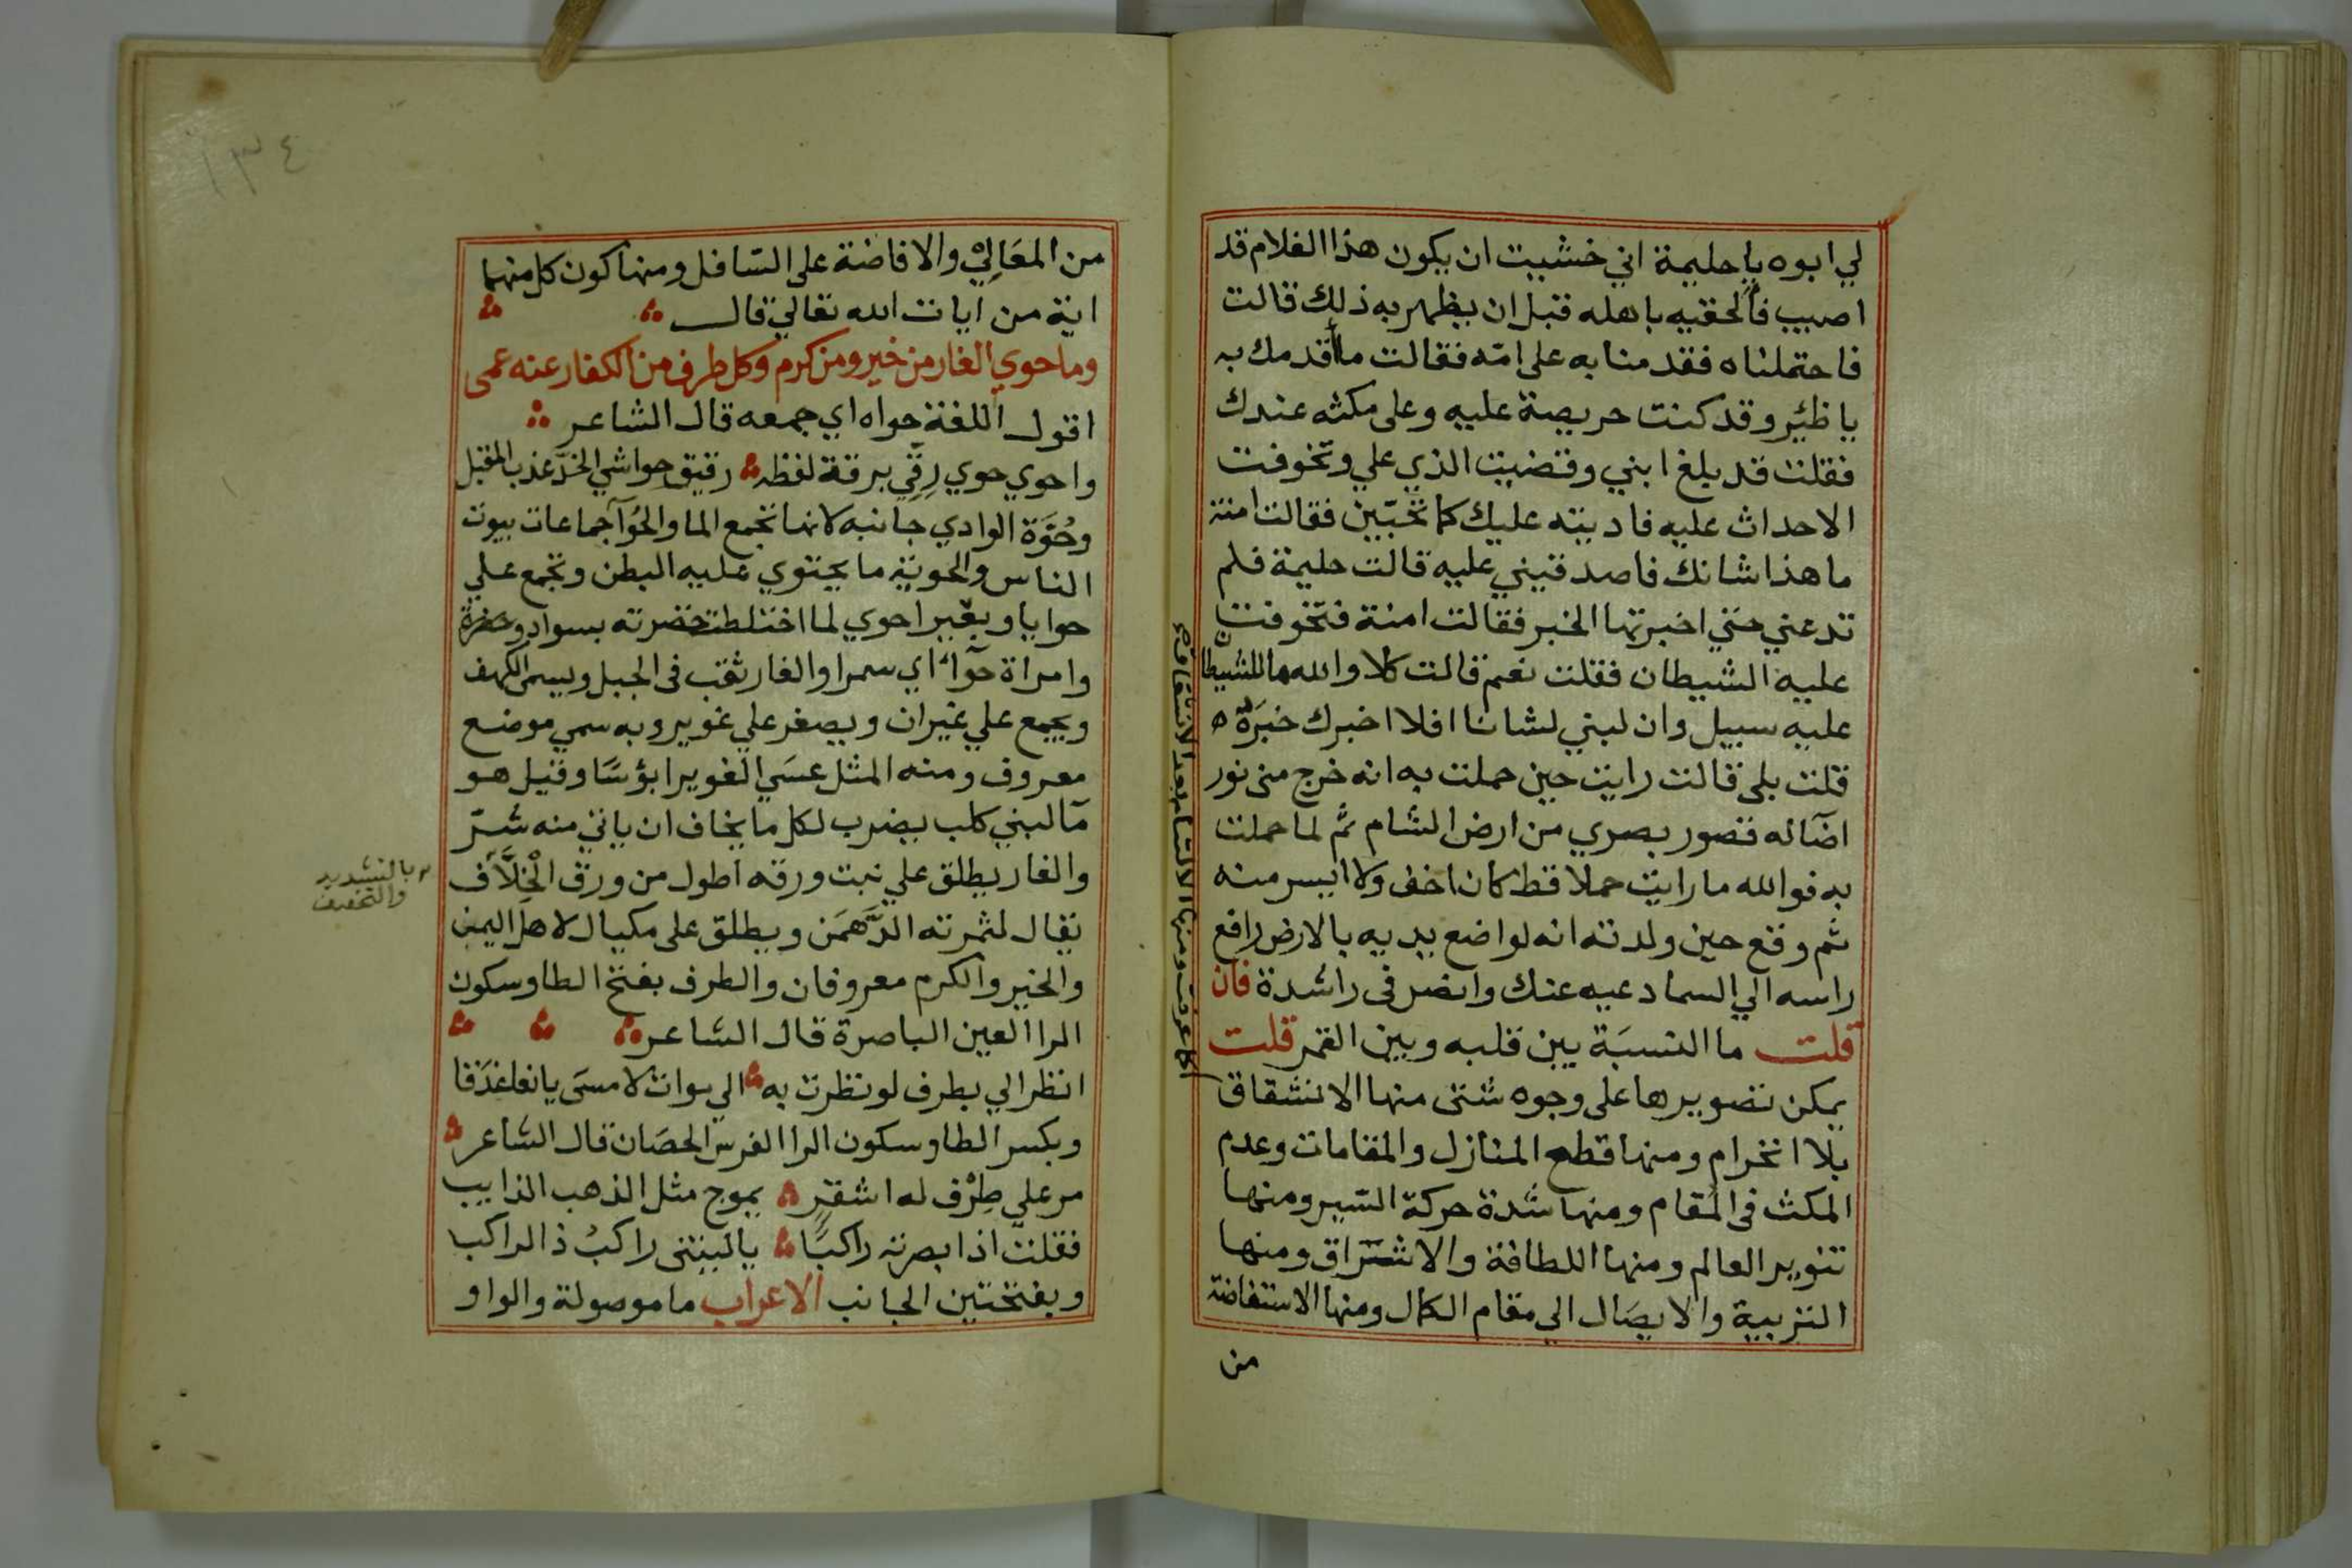 لي ابوه يا حليمة اني خشيت ان يكون هذا الغلام قد
اصيب فألحقيه باهله قبل ان يظهر به ذلك قالت
فاحتملناه فقدمنا به على امّه فقالت ما أقدمك به
يا ظئر وقد كنت حريصة عليه وعلى مكثه عندك
فقلت قد بلغ ابني وقضيت الذي علي وتخوفت
الاحداث عليه فاديته عليك كما تحبّين فقالت امنة
ما هذا شانك فاصدقيني عليه قالت حليمة فلم
تدعني حتي اخبرتها الخبر فقالت امنة فتخوفت
عليه الشيطان فقلت نعم قالت كلا والله ما للشيطان
عليه سبيل وان لبني لشانا افلا اخبرك خبرة ه
قلت بلى قالت رايت حين حملت به انه خرج منى نور
اضآله قصور بصري من ارض الشام ثم لما حملت
به فوالله ما رايت حملا قط كان اخف ولا ايسر منه
ثم وقع حين ولدته انه لواضع يديه بالارض رافع
راسه الي السما دعيه عنك وانضر في راشدة فان
قلت ما النسبَة بين قلبه وبين القمر قلت
يمكن تصويرها على وجوه شتى منها الانشقاق
بلا انخرام ومنها قطع المنازل والمقامات وعدم
المكث في المقام ومنها شدة حركة السّير ومنها
تنوير العالم ومنها اللطافة والاشراق ومنها
التربية والايصَال الي مقام الكمال ومنها الاستفاضة
من
كما عرفت ومنها الالتئام بعد الانشقاق
١٣٤
من المعَالِيْ والافاضة على السّافل ومنها كون كل منهما
اية من ايات الله تعالي قال
وما حوي الغار من خير ومن كرم وكل طرف من الكفار عنه عمى
اقول اللغة حواه اي جمعه قال الشاعر
واحوي حوي رِقّي برقة لفظه رقيق حواشي الخدّ عذب المقبل
وحُوَّة الوادي جانبه لانها تجمع الما والحُوَآ جماعات بيوت
الناس والحوية ما يحتوي عليه البطن وتجمع علي
حوايا وبعير احوي لما اختلطت خضرته بسواد وصفرة
وامراة حوّآ اي سمرا والغار ثقب في الجبل ويسمى الكهف
ويجمع علي غيران ويصغر علي غوير وبه سمي موضع
معروف ومنه المثل عسَي الغوير ابؤسًا وقيل هو
مآ لبني كلب يضرب لكل ما يخاف ان ياتي منه شرّ
والغار يطلق علي نبت ورقه اطول من ورق الْخِلَّاف
يقال لثمرته الدَّهمَن ويطلق على مكيال لاهل اليمن
والخير والكرم معروفان والطرف بفتح الطا وسكون
الرا العين الباصرة قال الشاعر
انظر الي بطرف لو نظرت به الي موات لامسَى يانعا غدَقا
وبكسر الطا وسكون الرا الفرس الحصَان قال الشاعر
مر علي طِرْف له اشقر يموج مثل الذهب الذايب
فقلت اذ ابصرته راكبًا يا ليتنى راكبُ ذا الراكب
وبفتحتين الجانب الاعراب ما موصولة والواو
بالتشديد
والتخفيف